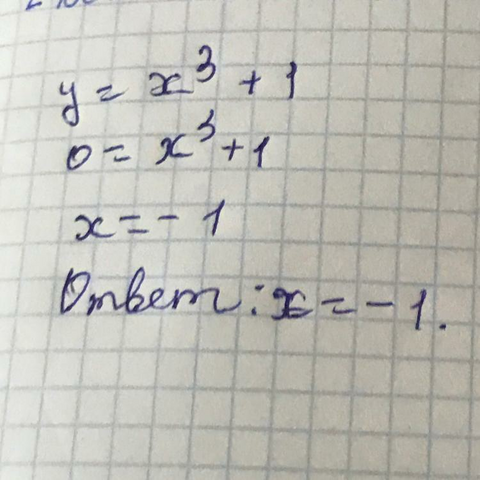 y = x³ + 1
0 = x³ + 1
x = - 1
Ответ: x = - 1.